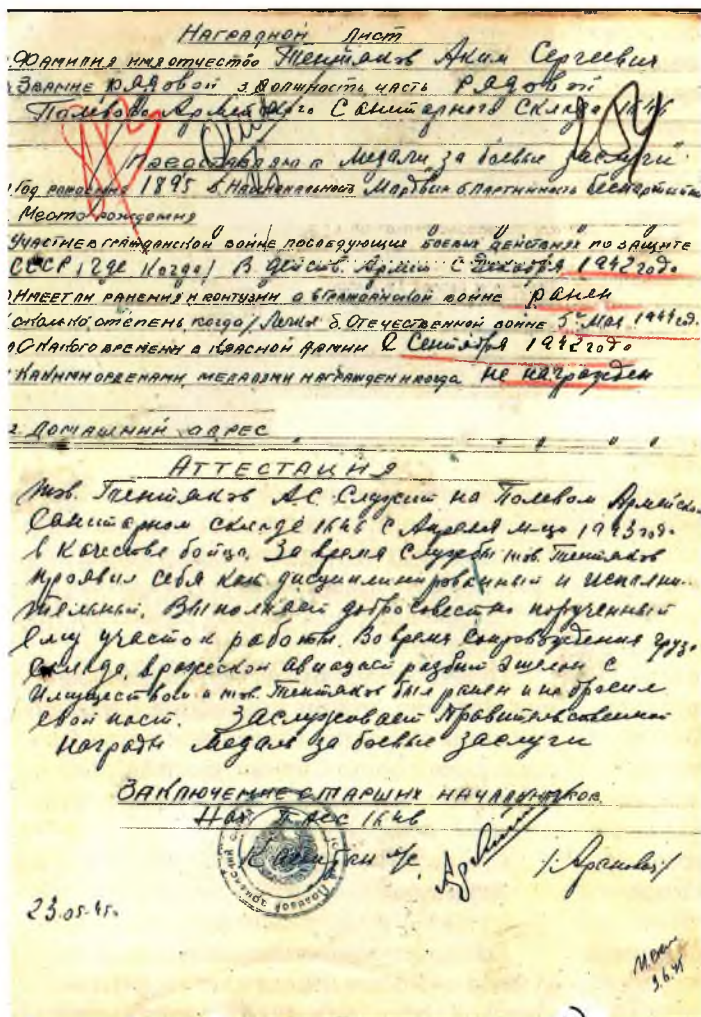 Наградной лист
1. Фамилия имя отчество Тентяков Аким Сергеевич
2. Звание рядовой 3. Должность часть рядовой
Полевого Армейского Санитарного Склада 1646
Представляю к Медали за боевые заслуги"
Год рождения 1895 5. Национальность Мардвин 6. Партийность беспартийн
Место рождения
Участие в гражданской войне последующих боевых действиях по защите
СССР, где, когда/ В действ. Армии с Декабря 1942 года
Имеет ли ранения и контузии в гражданской войне ранен
сколько степень, когда/ Легко б. Отечественной войне 5го Мая 1944 год.
С какого времени в Красной Армии С Сентября 1942 года
Какими орденами, медалями награжден и когда не награжден
2. Домашний адрес
Аттестация
тов. Тентяков А.С. Служит на Полевом Армейском
Санитарном складе 1646 с Апреля м-ца 1943 год.
в качестве бойца. За время службы тов. Тентяков
проявил себя как дисциплинированный и исполни-
тельный. Выполняет добросовестно порученный
Ему участок работы. Во время сопровождения груза
склада, вражеской авиацией разбит эшелон с
Имуществом а тов. Тентяков был ранен и не бросил
свой пост. Заслуживает правительственной
награды Медаль за боевые заслуги
Заключение старших начальников
Нач. ПАСС 1646
Капитан м/с /Аранович/
23.05.45г.
9.6.45